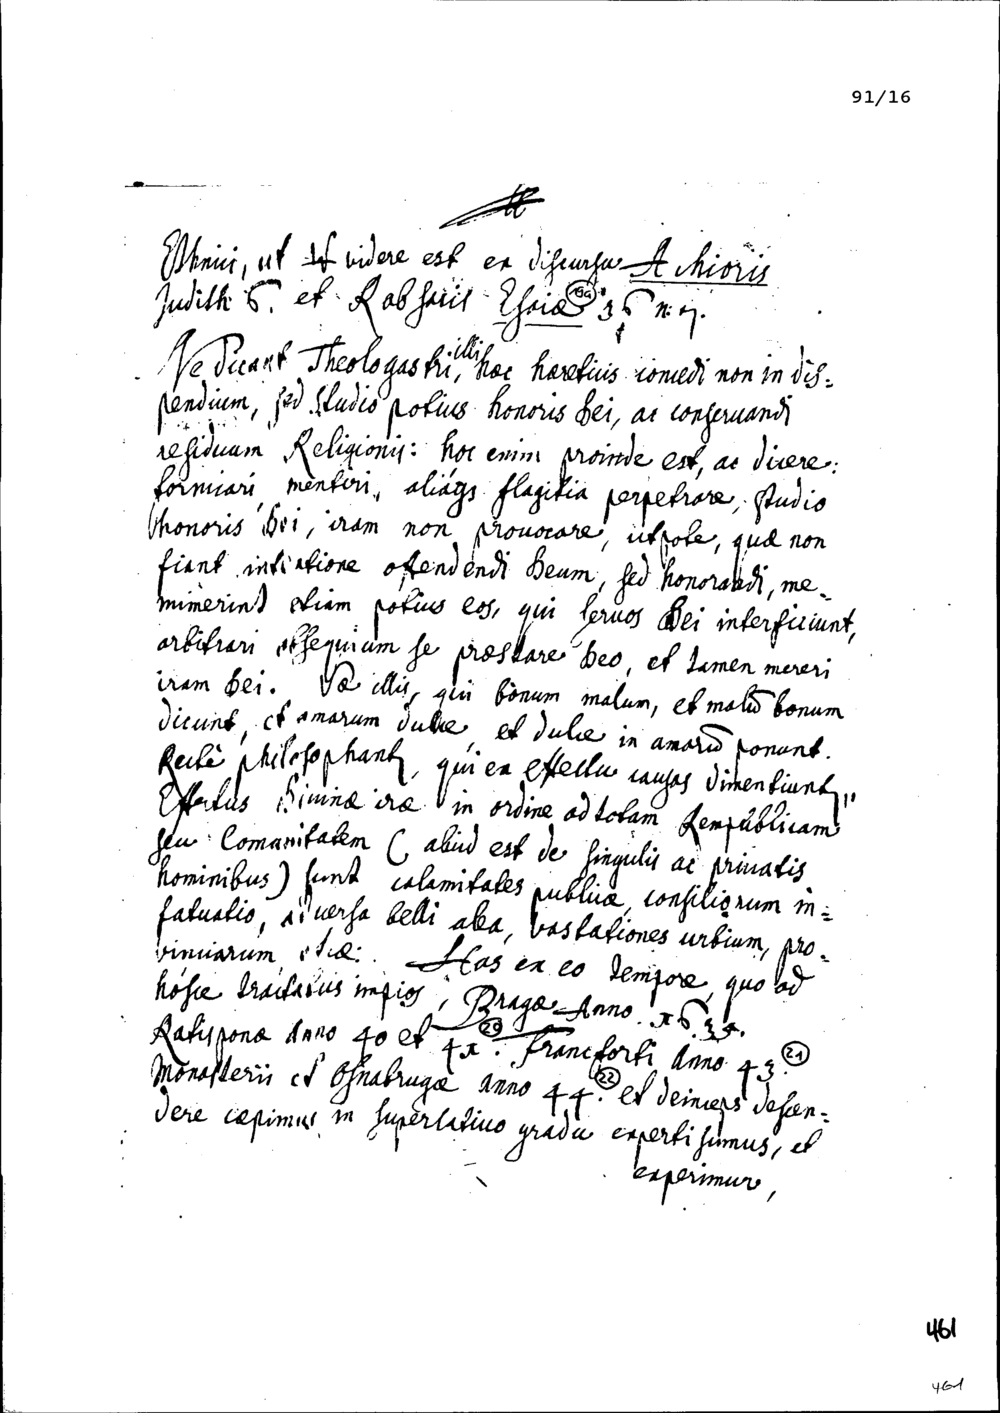 91/16
Ethnici, ut videre est ex discursu Achioris
Judith 6. et Rabsacis Esaiæ 36 n. 7.
Ne Dicant Theologastri, illi hæc hæreticis concedi non in dis=
pendium, sed studio potius honoris Dei, ac conservandi
residuum Religionis: hoc enim proinde est, ac dicere:
fornicari, mentiri, aliáqs flagitia perpetrare, studio
honoris Dei, iram non provocare, utpote, quæ non
fiant intentione offendendi Deum, sed honorandi, me=
minerint etiam potius eos, qui servos Dei interficiunt,
arbitrari obsequium se præstare Deo, et tamen mereri
iram Dei. Væ illis, qui bonum malum, et malũ bonum
dicunt, et amarum dulce, et dulce in amarũ ponunt.
Recte philosophantr, qui ex effectu causas dimentiuntr,
Effectus Divinæ iræ in ordine ad totam Rempublicam
seu Comunitatem (aliud est de singulis ac privatis
hominibus) sunt calamitates publicæ, consiliorum in=
fatuatio, adversa belli alea, vastationes urbium, pro=
vinciarum etcæ: Has ex eo tempore, quo ad
hósce tractatus impios, Pragæ Anno 1635.
Ratisponæ Anno 40 et 41. (20) Francforti Anno 43. (21)
Monasterii et Osnabrugæ anno 44. (22) et deinceps descen=
dere cæpimus in superlativo gradu experti sumus, et
experimur,
461
461